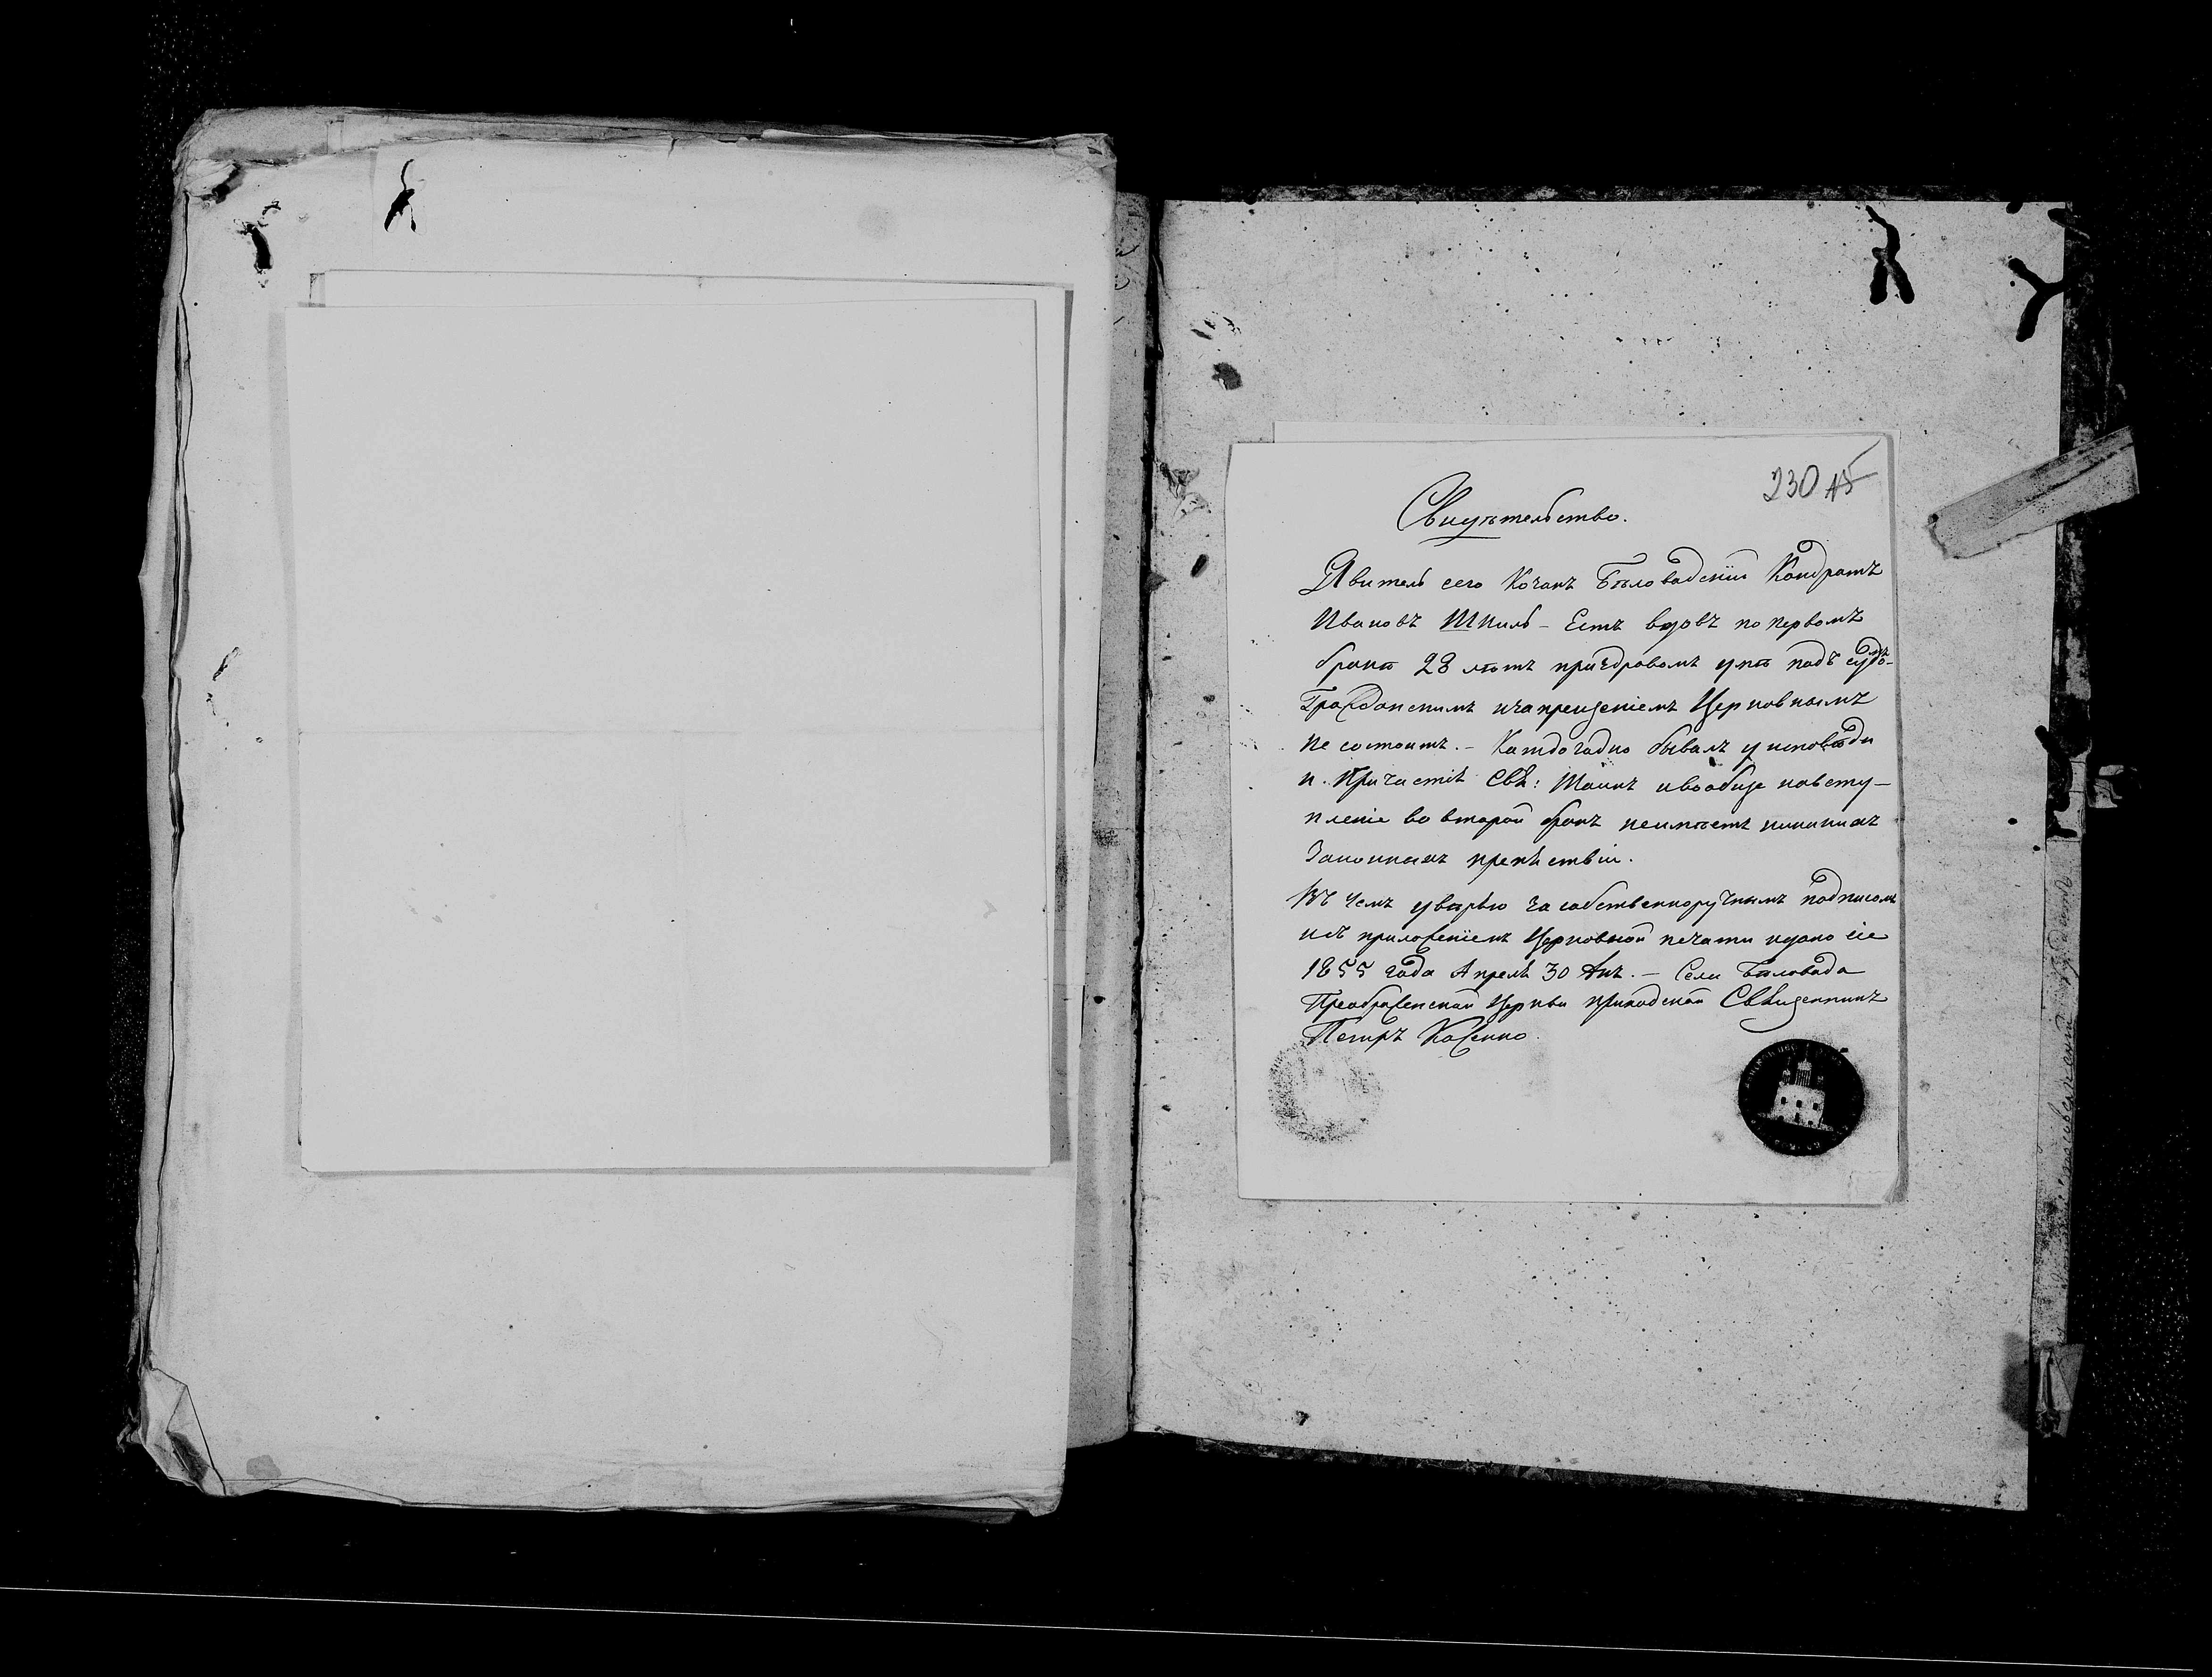 230 15
Свидѣтельство.
Явитель сего Козакъ Бѣловодскій Кондратъ
Ивановъ Шпиль – Есть вдовъ по первомъ
бракѣ 28 лѣтъ приздравомъ умѣ подъ судомъ
Гражданскимъ изапрещеніемъ Церковнымъ
не состоитъ. – Каждогодно бывалъ у исповѣди
и Причастія Свя: Таинъ ивообще новсту-
пленіе во второй бракъ неимѣетъ никакихъ
Законныхъ препятствіи.
Въ чемъ увѣряю за собственноручнымъ подписомъ
исъ приложеніемъ Церковной печати идано сіе
1855 года Апреля 30 дня. – Села Бѣловода
Преображенской Церкви приходской Священникъ
Петръ